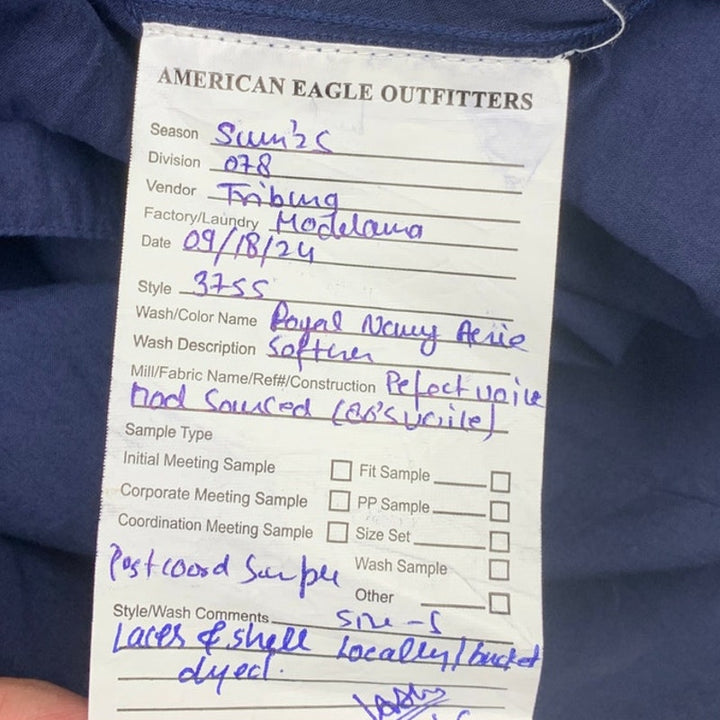 AMERICAN EAGLE OUTFITTERS
Season Sum'25
Division 078
Vendor Triburg
Factory/Laundry Modelama
Date 09/18/24
Style 3755
Wash/Color Name Royal Navy Aerie
Wash Description Softner
Mill/Fabric Name/Ref#/Construction Pefect voile
nod Sourced (60's voile)
Sample Type
Initial Meeting Sample Fit Sample
Corporate Meeting Sample PP Sample
Coordination Meeting Sample Size Set
Post coord Sample Wash Sample
Other
Style/Wash Comments Size - S
Laces & shell Locally/bucket
dyed.